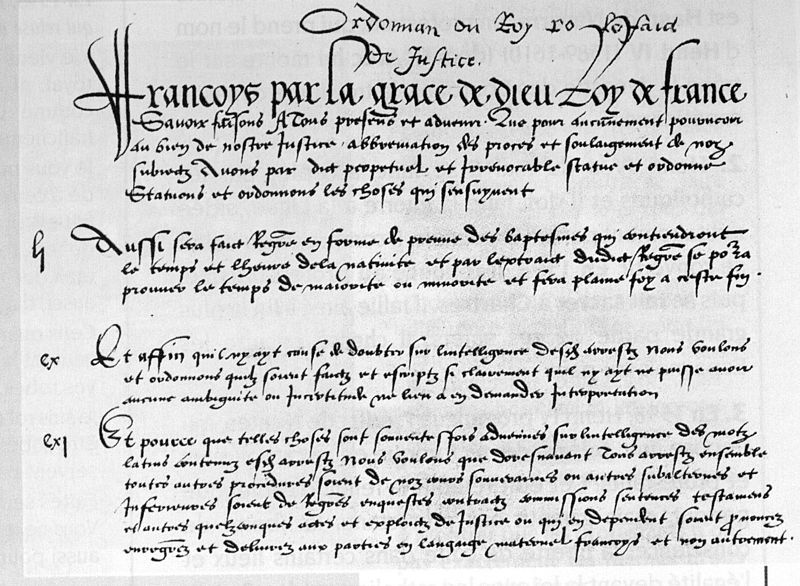 Ordonnan du Roy
De Justice.
Francoys par la grace de dieu Roy de france
Savoir faisons A Tous presens et advenir. Que pour aucunement pourveoir
au bien de nostre Justice . abbreviation des proces et soulaigement de noz
subiectz Avons par dict perpetuel et Irrevocable statue et ordonne
Statuons et ordonnons les choses qui sensuyvent
Aussi sera faict Regre en forme de preuve des baptesmes qui contiendront
le temps et lheure dela nativite et par lextraict dudict Regre se porra
prouver le temps de maiorite ou minorite et fera plaine foy a ceste fin .
cx Et affin quil ny ayt cause de doubter sur lintelligence desdz arrestz Nous voulons
et ordonnons quilz soient faictz et escriptz si clairement quil ny ayt ne puisse avoir
aucune ambiguite ou Incertitude ne lieu a en demander Interpretation
cxj Et pource que telles choses sont souventesfois advenues sur lintelligence des motz
latins contenuz esdz arrestz Nous voulons que doresnavant Tous arrestz ensemble
toutes autres procedures soient de noz cours souveraines ou autres subalternes et
Inferieures soient de Regres enquestes contractz commissions sentences testamens
et autres quelzconques actes et exploictz de Justice ou qui en dependent soient prononcez
enregrez et delivrez aux parties en langaige maternel francoys et non autrement.